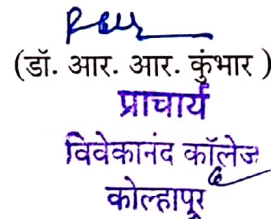 (डॉ. आर. आर. कुंभार )
प्राचार्य
विवेकानंद कॉलेज
कोल्हापूर